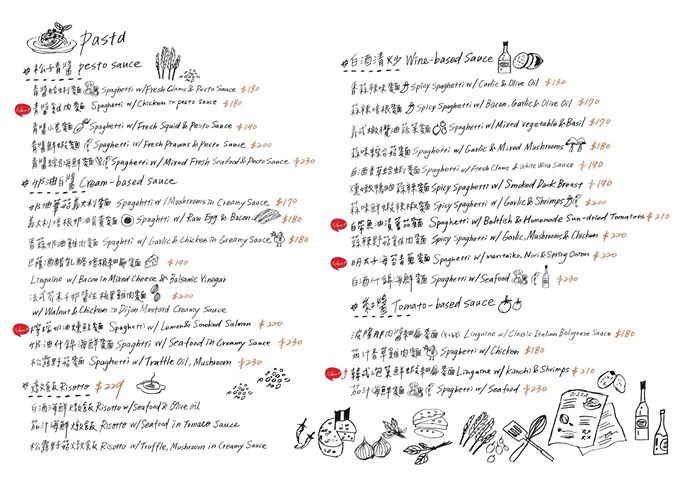 pasta
松子青醬 pesto sauce
青醬蛤蜊麵 Spaghetti w/Fresh Clams & Pesto Sauce $180
New! 青醬雞肉麵 Spaghetti w/Chicken in pesto sauce $180
青醬小卷麵 Spaghetti w/Fresh Squid & Pesto Sauce $190
青醬鮮蝦麵 Spaghetti w/Fresh Prawns & Pesto Sauce $200
青醬綜合海鮮麵 Spaghetti w/Mixed Fresh Seafood & Pesto Sauce $230
奶油白醬 Cream-based sauce
奶油蘑菇義大利麵 Spaghetti w/Mushrooms in Creamy Sauce $170
義大利培根奶油蛋黃麵 Spaghetti w/ Raw Egg & Bacon $180
香蒜奶油雞肉麵 Spaghetti w/ Garlic & Chicken in Creamy Sauce $180
巴薩米醋乳酪培根細扁麵 $190
Linguine w/ Bacon in Mixed Cheese & Balsamic Vinegar
法式芥末子奶醬佐核果雞肉麵 $200
w/ Walnut & Chicken in Dijon Mustard Creamy Sauce
New! 檸檬奶油燻鮭麵 Spaghetti w/ Lemon & Smoked Salmon $220
奶油什錦海鮮麵 Spaghetti w/ Seafood in Creamy Sauce $230
松露野菇麵 Spaghetti w/ Truffle Oil, Mushroom $230
燉飯 Risotto $229
白酒海鮮燉飯 Risotto w/Seafood & Olive oil
茄汁海鮮燉飯 Risotto w/Seafood in Tomato Sauce
松露野菇燉飯 Risotto w/Truffle, Mushroom in Creamy Sauce
白酒清炒 Wine-based Sauce
香蒜辣味麵 Spicy Spaghetti w/ Garlic & Olive Oil $130
蒜辣培根麵 Spicy Spaghetti w/ Bacon, Garlic & Olive Oil $170
義式橄欖油蔬菜麵 Spaghetti w/ Mixed vegetable & Basil $170
蒜味綜合菇麵 Spaghetti w/ Garlic & Mixed Mushrooms $180
白酒香草蛤蜊麵 Spaghetti w/Fresh Clams & White Wine Sauce $190
煙燻鴨胸蒜辣麵 Spicy Spaghetti w/ Smoked Duck Breast $190
蒜味鮮蝦辣椒麵 Spicy Spaghetti w/ Garlic & Shrimps $200
New! 白帶魚油漬蕃茄麵 Spaghetti w/ Beltfish & Homemade Sun-dried Tomatoes $210
蒜辣野菇雞肉麵 Spicy Spaghetti w/ Garlic, Mushrooms & Chicken $220
New! 明太子海苔青蔥麵 Spaghetti w/ mentaiko, Nori & Spring Onion $220
白酒什錦海鮮麵 Spaghetti w/ Seafood $230
紅醬 Tomato-based sauce
波隆那肉醬細扁麵 Linguine w/ Classic Italian Bolognese Sauce $180
茄汁香草雞肉麵 Spaghetti w/ Chicken $180
New! 韓式泡菜鮮蝦細扁麵 Linguine w/ Kimchi & Shrimps $210
茄汁海鮮麵 Spaghetti w/ Seafood $230